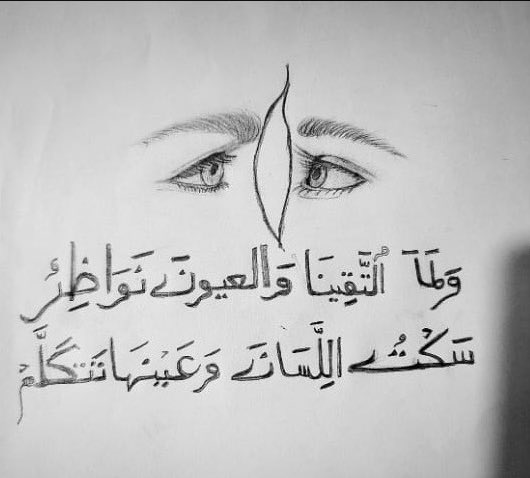 وَلَمَّا اُلتَّقِينَا وَالعيون نَوَاظِرُ
سَكْتُ اللِّسَان وَعَيْنهَا تَتَكَلَّمْ